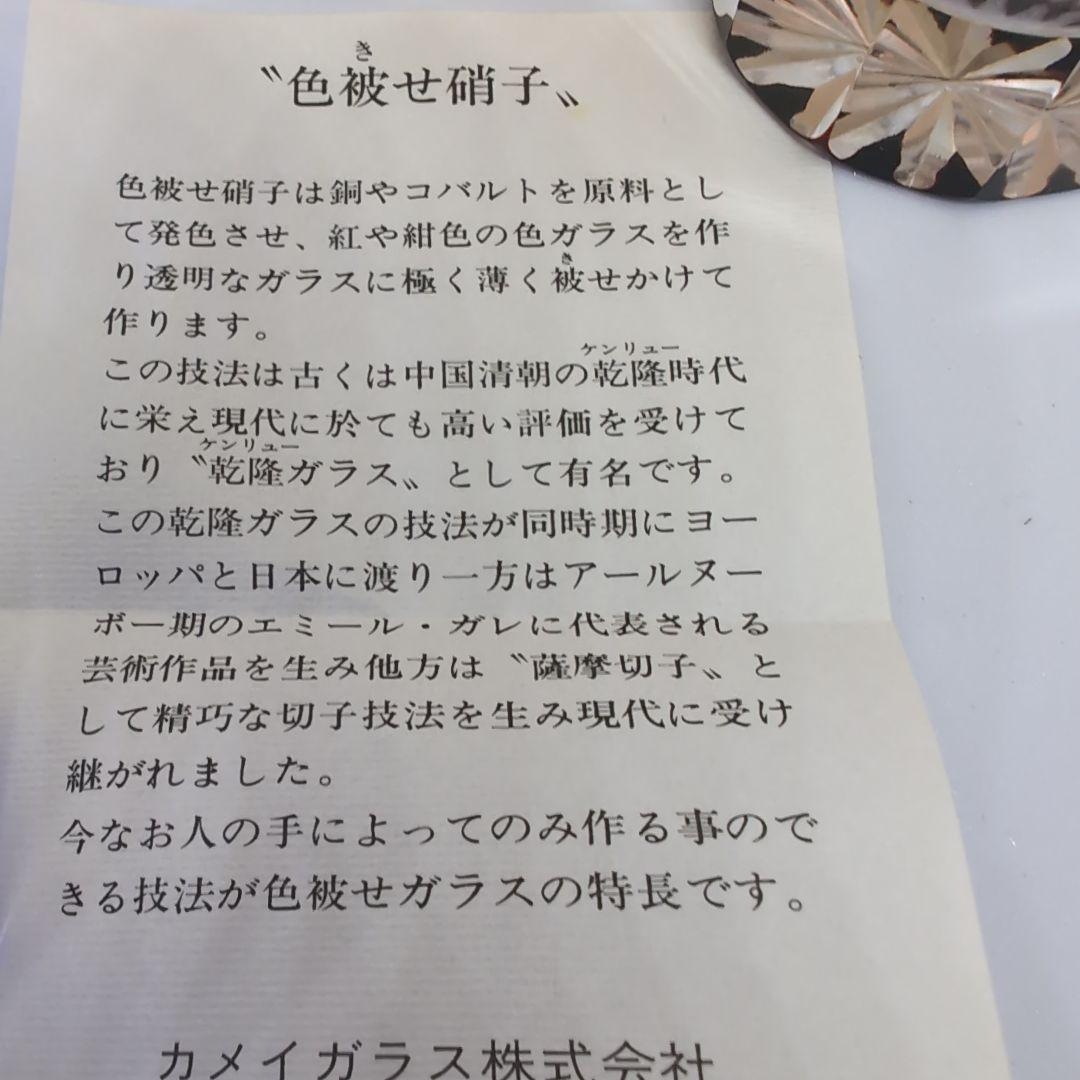 〝色被せ硝子〟
き
色被せ硝子は銅やコバルトを原料とし
て発色させ、紅や紺色の色ガラスを作
り透明なガラスに極く薄く被せかけて
き
作ります。
この技法は古くは中国清朝の乾隆時代
ケンリュー
に栄え現代に於ても高い評価を受けて
おり〝乾隆ガラス〟として有名です。
ケンリュー
この乾隆ガラスの技法が同時期にヨー
ロッパと日本に渡り一方はアールヌー
ボー期のエミール・ガレに代表される
芸術作品を生み他方は〝薩摩切子〟と
して精巧な切子技法を生み現代に受け
継がれました。
今なお人の手によってのみ作る事ので
きる技法が色被せガラスの特長です。
カメイガラス株式会社